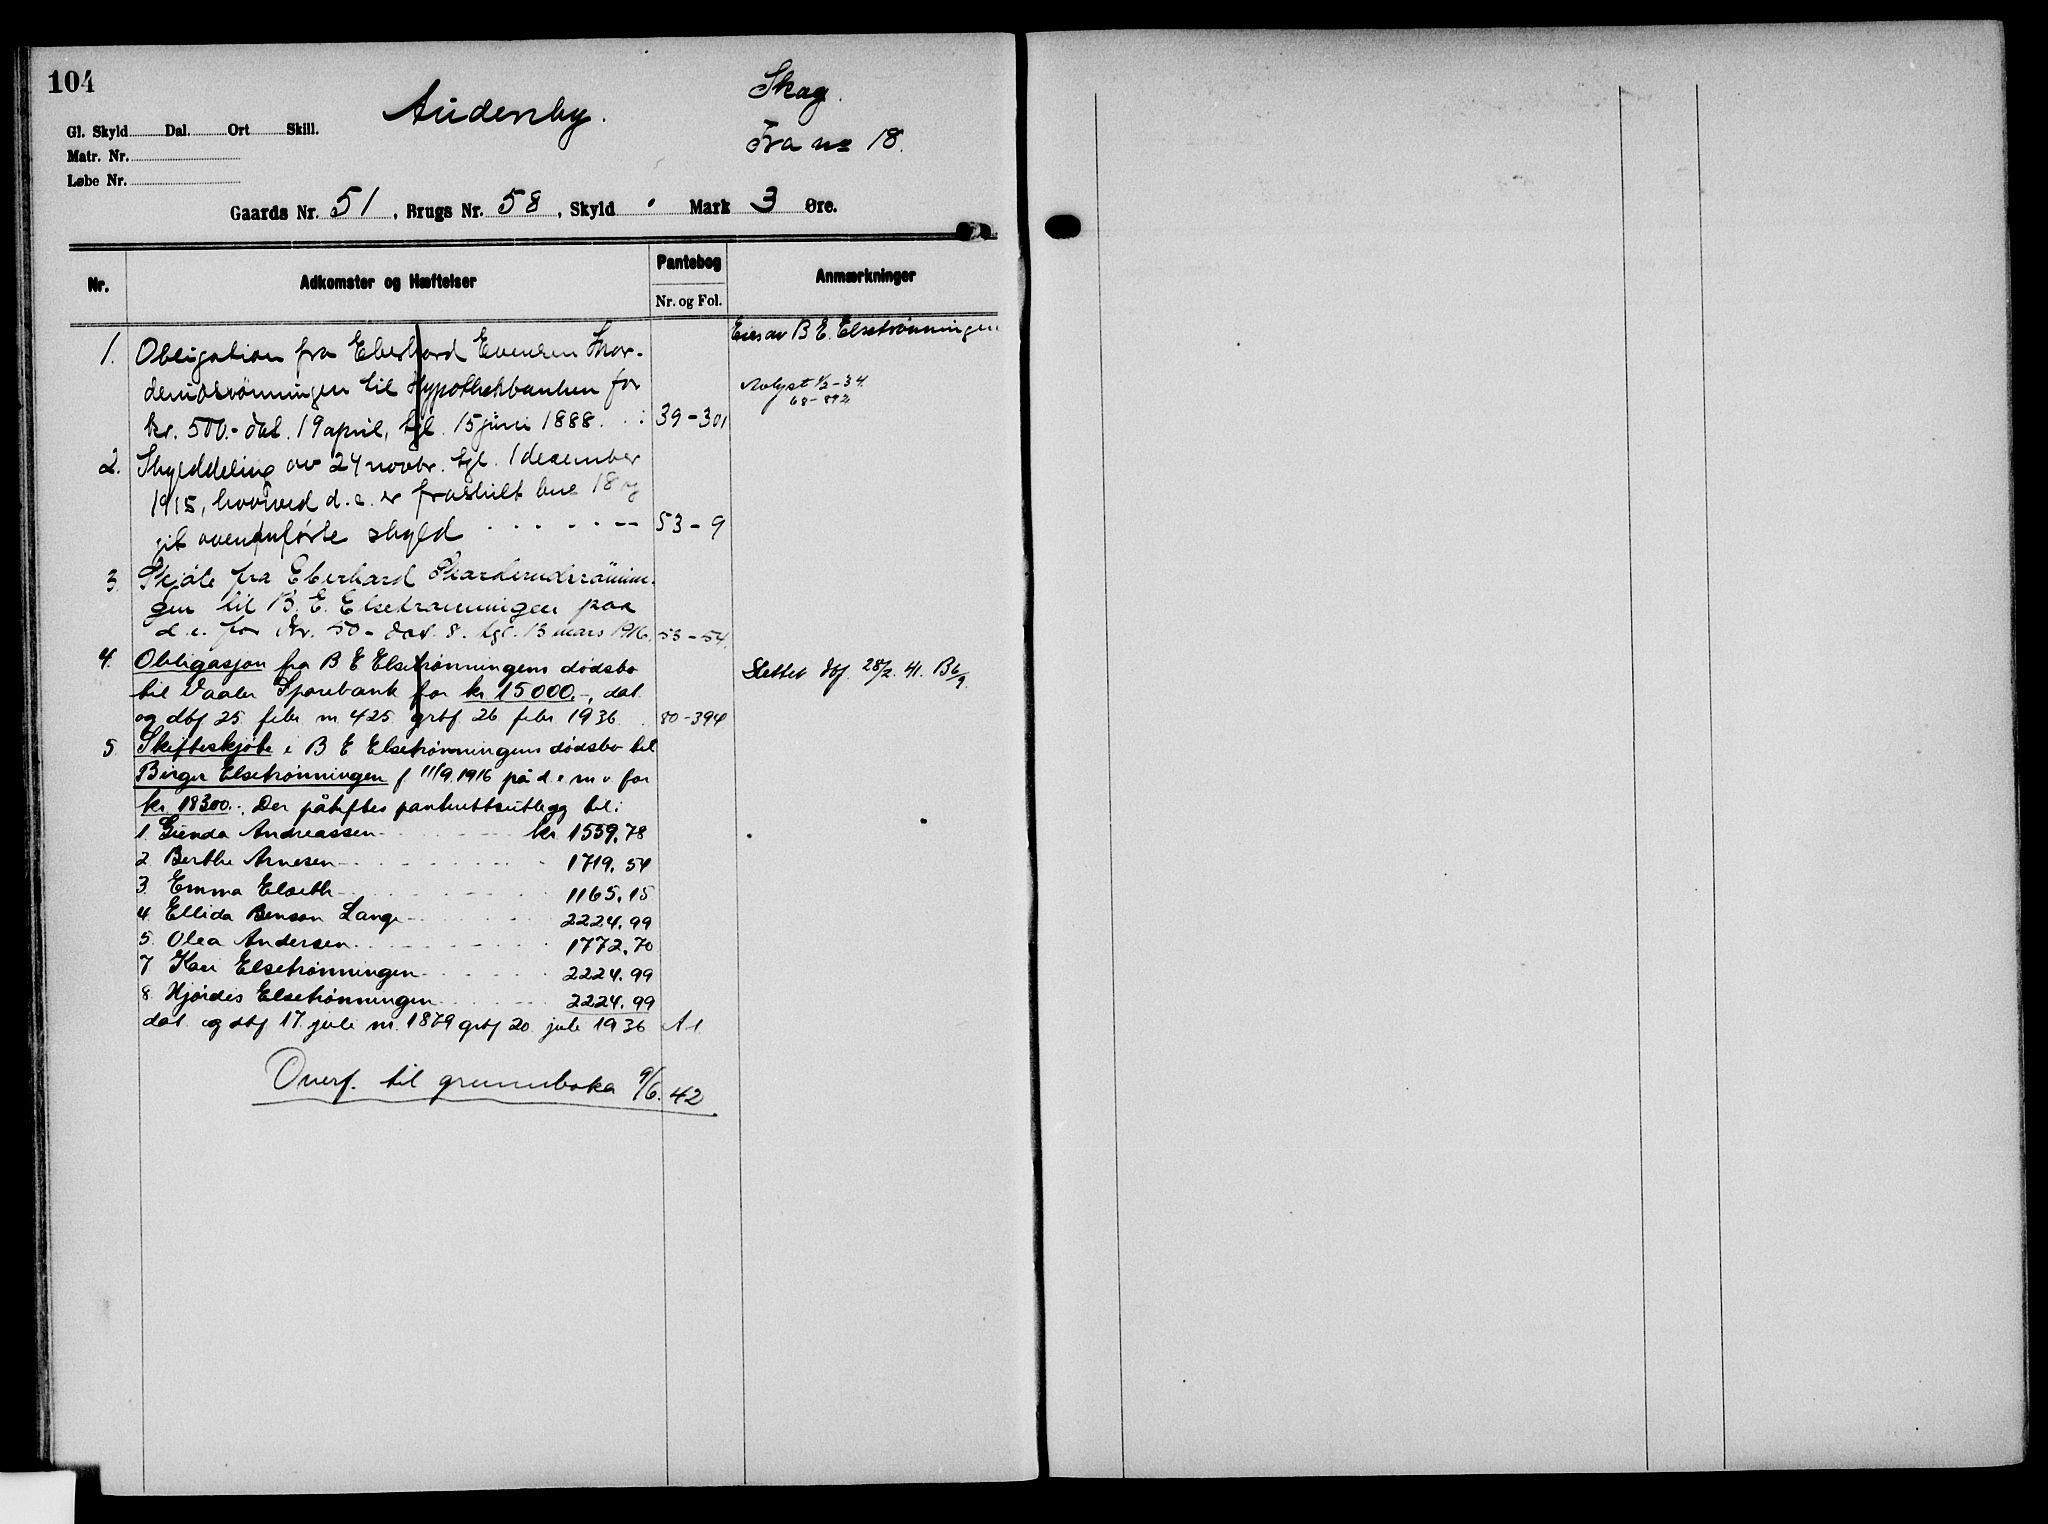 104
Audenby.
Skog.
Fra no 18.
Gl. Skyld Dal. Ort Skill.
Matr. Nr.
Løbe Nr.
Gaards Nr. 51, Brugs Nr. 58, Skyld Mark 3 Øre.
Nr. Adkomster og Hæftelser Pantebog Nr. og Fol. Anmærkninger
Eies av B E. Elsetrønningen
1. Obligation fra Eberhard Evensen Skar-
derudsrønningen til Hypothekbanken for
kr. 500.- dat. 19 april, tgl. 15 juni 1888. 39-301
Avlyst 1/2-34.
68-892
2. Skylddeling av 24 novbr. tgl. 1 desember
1915, hvorved d. e. er fraskilt bno 18 og
git ovenanførte skyld 53-9
3. Skjøte fra Eberhard Skarderudsrønnin-
gen til B. E. Elsetrønningen paa
d. e. for kr. 50- dat. 8. tgl. 13 mars 1916. 53-54.
4. Obligasjon fra B E Elsetrønningens dødsbo
til Vaaler Sparebank for kr 15000.-, dat.
og dbf 25. febr nr 425. grbf 26 febr 1936. 80-394
Slettet dbf. 28/2. 41. B 6/9.
5. Skifteskjøte i B E Elsetrønningens dødsbo til
Birger Elsetrønningen f 11/9.1916 på d. e m v. for
kr 18300.-. Der påheftes panterettsutlegg til:
1. Gunda Andreassen kr. 1559.78
2. Berthe Arnesen 1719.54
3. Emma Elseth 1165.15
4. Ellida Benson Lange 2224.99
5. Olea Andersen 1772.70
7 Kari Elsetrønningen 2224.99
8. Hjørdis Elsetrønningen 2224.99
dat. og dbf 17. juli nr. 1879 grbf 20. juli 1936 A 1.
Overf. til grunnboka 9/6. 42